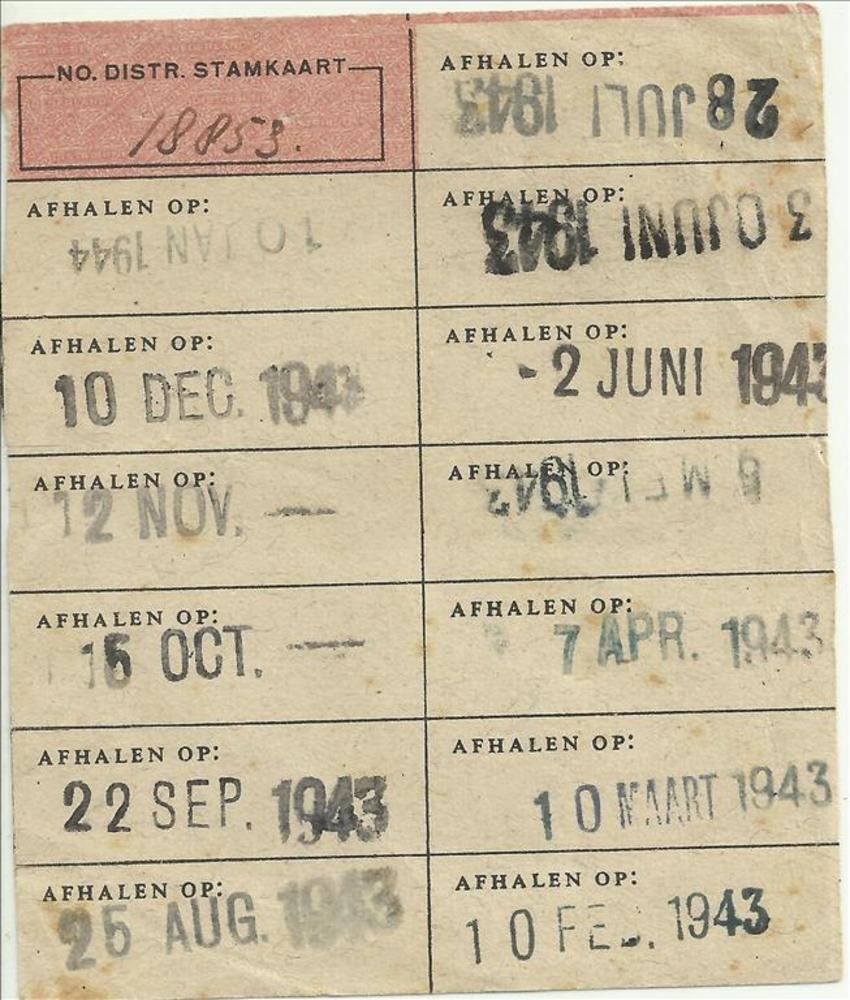 NO. DISTR. STAMKAART
18853.
AFHALEN OP:
28 JULI 1943
AFHALEN OP:
10 JAN 1944
AFHALEN OP:
30 JUNI 1943
AFHALEN OP:
10 DEC. 1943
AFHALEN OP:
- 2 JUNI 1943
AFHALEN OP:
12 NOV. —
AFHALEN OP:
MEI 1943
AFHALEN OP:
15 OCT. —
AFHALEN OP:
7 APR. 1943
AFHALEN OP:
22 SEP. 1943
AFHALEN OP:
10 MAART 1943
AFHALEN OP:
25 AUG. 1943
AFHALEN OP:
10 FEB. 1943